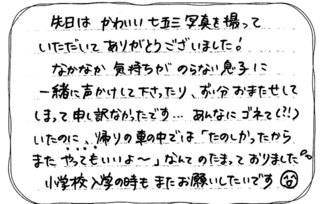 先日は かわいい七五三写真を撮って
いただいて ありがとうございました!
なかなか 気持ちが のらない息子に
一緒に声かけして下さったり、お待たせして
しまって申し訳なかったです… あんなにゴネて(?!)
いたのに、帰りの車の中では「たのしかったから
また やってもいいよ〜」なんて のたまって おりました
小学校入学の時も またお願いしたいです